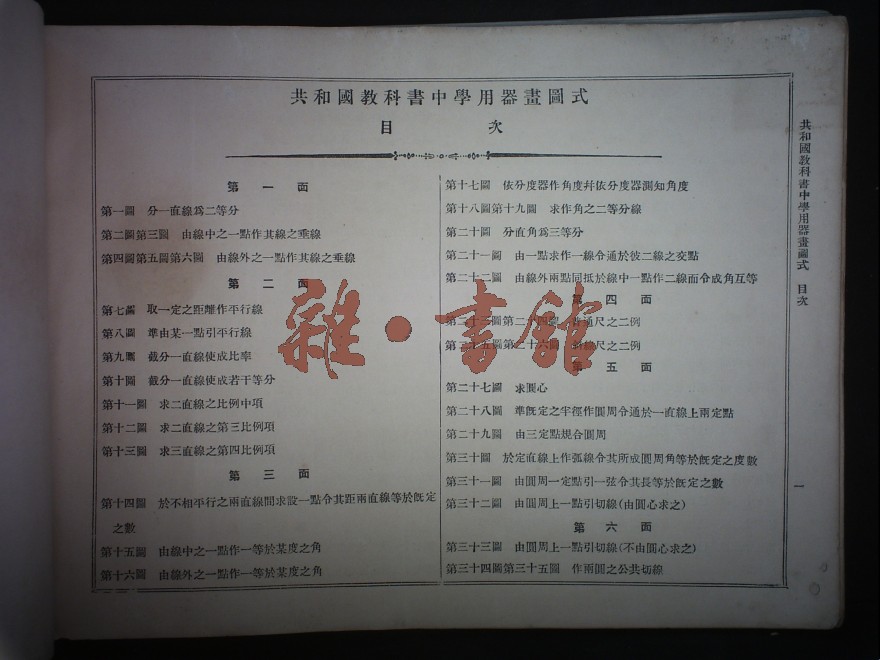 共和國教科書中學用器畫圖式
目次
第一面
第一圖 分一直線爲二等分
第二圖第三圖 由線中之一點作其線之垂線
第四圖第五圖第六圖 由線外之一點作其線之垂線
第二面
第七圖 取一定之距離作平行線
第八圖 準由某一點引平行線
第九圖 截分一直線使成比率
第十圖 截分一直線使成若干等分
第十一圖 求二直線之比例中項
第十二圖 求二直線之第三比例項
第十三圖 求三直線之第四比例項
第三面
第十四圖 於不相平行之兩直線間求設一點令其距兩直線等於旣定
之數
第十五圖 由線中之一點作一等於某度之角
第十六圖 由線外之一點作一等於某度之角
第十七圖 依分度器作角度幷依分度器測知角度
第十八圖第十九圖 求作角之二等分線
第二十圖 分直角爲三等分
第二十一圖 由一點求作一線令通於彼二線之交點
第二十二圖 由線外兩點同抵於線中一點作二線而令成角互等
第四面
第二十三圖第二十四圖 普通尺之二例
第二十五圖第二十六圖 斜線尺之二例
第五面
第二十七圖 求圓心
第二十八圖 準旣定之半徑作圓周令通於一直線上兩定點
第二十九圖 由三定點規合圓周
第三十圖 於定直線上作弧線令其所成圓周角等於旣定之度數
第三十一圖 由圓周一定點引一弦令其長等於旣定之數
第三十二圖 由圓周上一點引切線(由圓心求之)
第六面
第三十三圖 由圓周上一點引切線(不由圓心求之)
第三十四圖第三十五圖 作兩圓之公共切線
共和國教科書中學用器畫圖式 目次
一
雜·書館